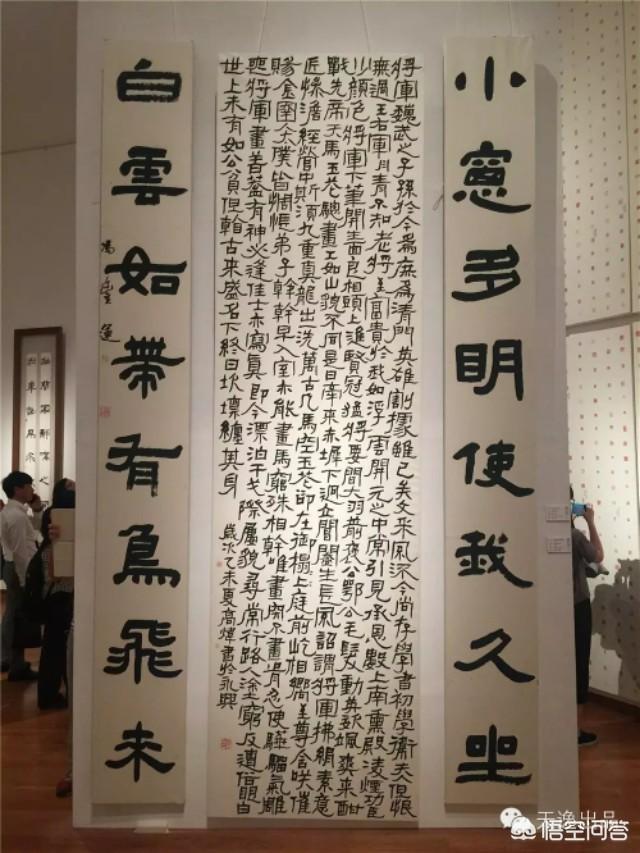 小窻多明使我久坐
將軍魏武之子孫於今為庶為清門英雄割據雖已矣文采風流今尚存學書初學衛夫人但恨
無過王右軍丹青不知老將至富貴於我如浮雲開元之中常引見承恩數上南熏殿凌煙功臣
少顏色將軍下筆開生面良相頭上進賢冠猛將要間大羽箭褒公鄂公毛髮動英姿颯爽来酣
戰先帝天馬玉花驄畫工如山貌不同是日牽来赤墀下迥立閶闔生長風詔謂將軍拂絹素意
匠慘澹經營中斯須九重真龍出一洗萬古凡馬空玉花卻在御榻上榻上庭前屹相嚮至尊含笑催
賜金圉人太僕皆惆悵弟子韓幹早入室亦能畫馬窮殊相幹唯畫肉不畫骨忍使驊騮氣凋
喪將軍畫善蓋有神必逢佳士亦寫真即今漂泊干戈際屢貌尋常行路人途窮反遭俗眼白
世上未有如公貧但看古来盛名下終日坎壈纏其身
歲次乙未夏高煒書於永興
白雲如帶有鳥飛来
天逸出品
悟空问答